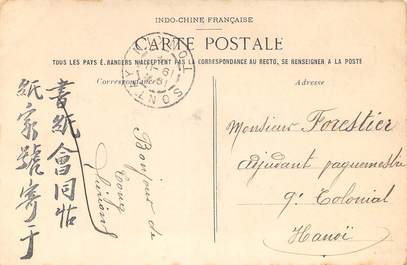 INDO-CHINE FRANÇAISE
CARTE POSTALE
TOUS LES PAYS ÉTRANGERS N'ACCEPTENT PAS LA CORRESPONDANCE AU RECTO, SE RENSEIGNER A LA POSTE
Correspondance
Adresse
SONTAY
書紙會同帖
紙家號寄于
Bonjour de
Tong
Monsieur Forestier
adjudant vaguemestre
9e Colonial
Hanoï